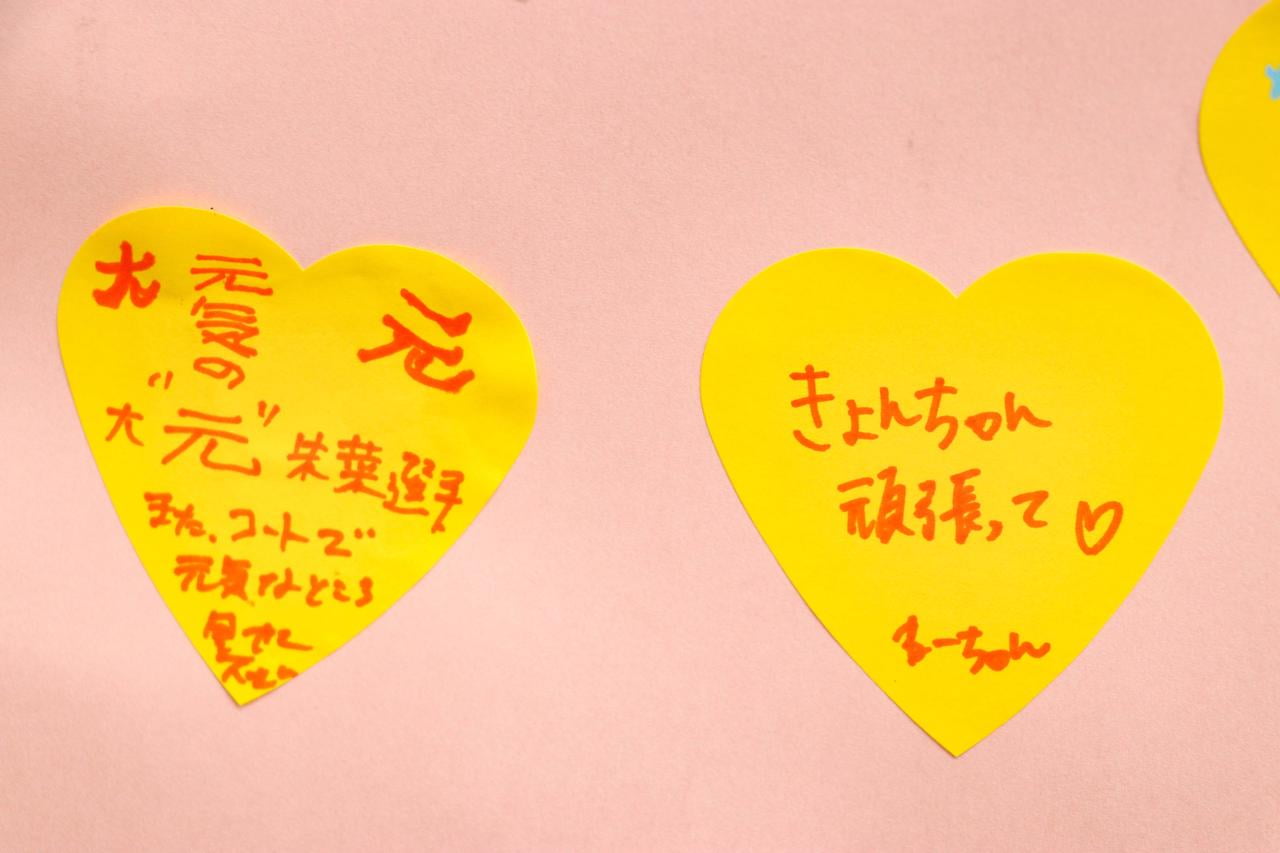 大 元
元気の
大"元"朱葉選手
また、コートで
元気なところ
見せて
下さい
きょんちゃん
頑張って♡
まーちゃん